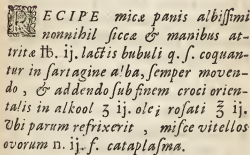 RECIPE micæ panis albissimi
nonnihil siccæ & manibus at-
tritæ ℔. ij. lactis bubuli q. s. coquan-
tur in sartagine alba, semper moven-
do, & addendo sub finem croci orien-
talis in alkool ʒ ij. olei rosati ℥ ij.
Ubi parum refrixerit, misce vitellos
ovorum n. ij. f. cataplasma.